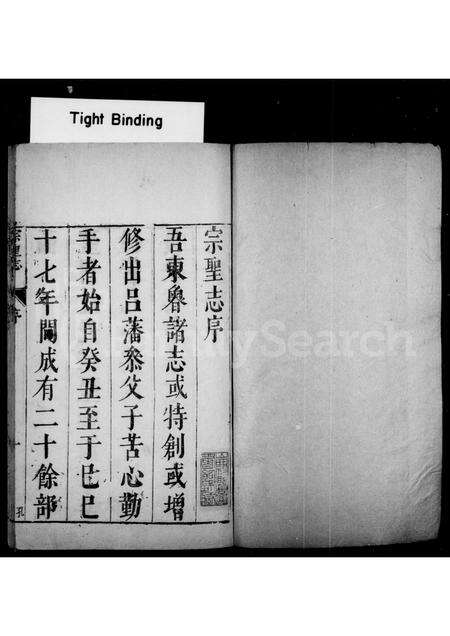 Tight Binding
宗聖志序
吾東魯諸志或特創或增
修出呂藩叅父子苦心勤
手者始自癸丑至于巳巳
十七年閒成有二十餘部
宗聖志
序
一
孔